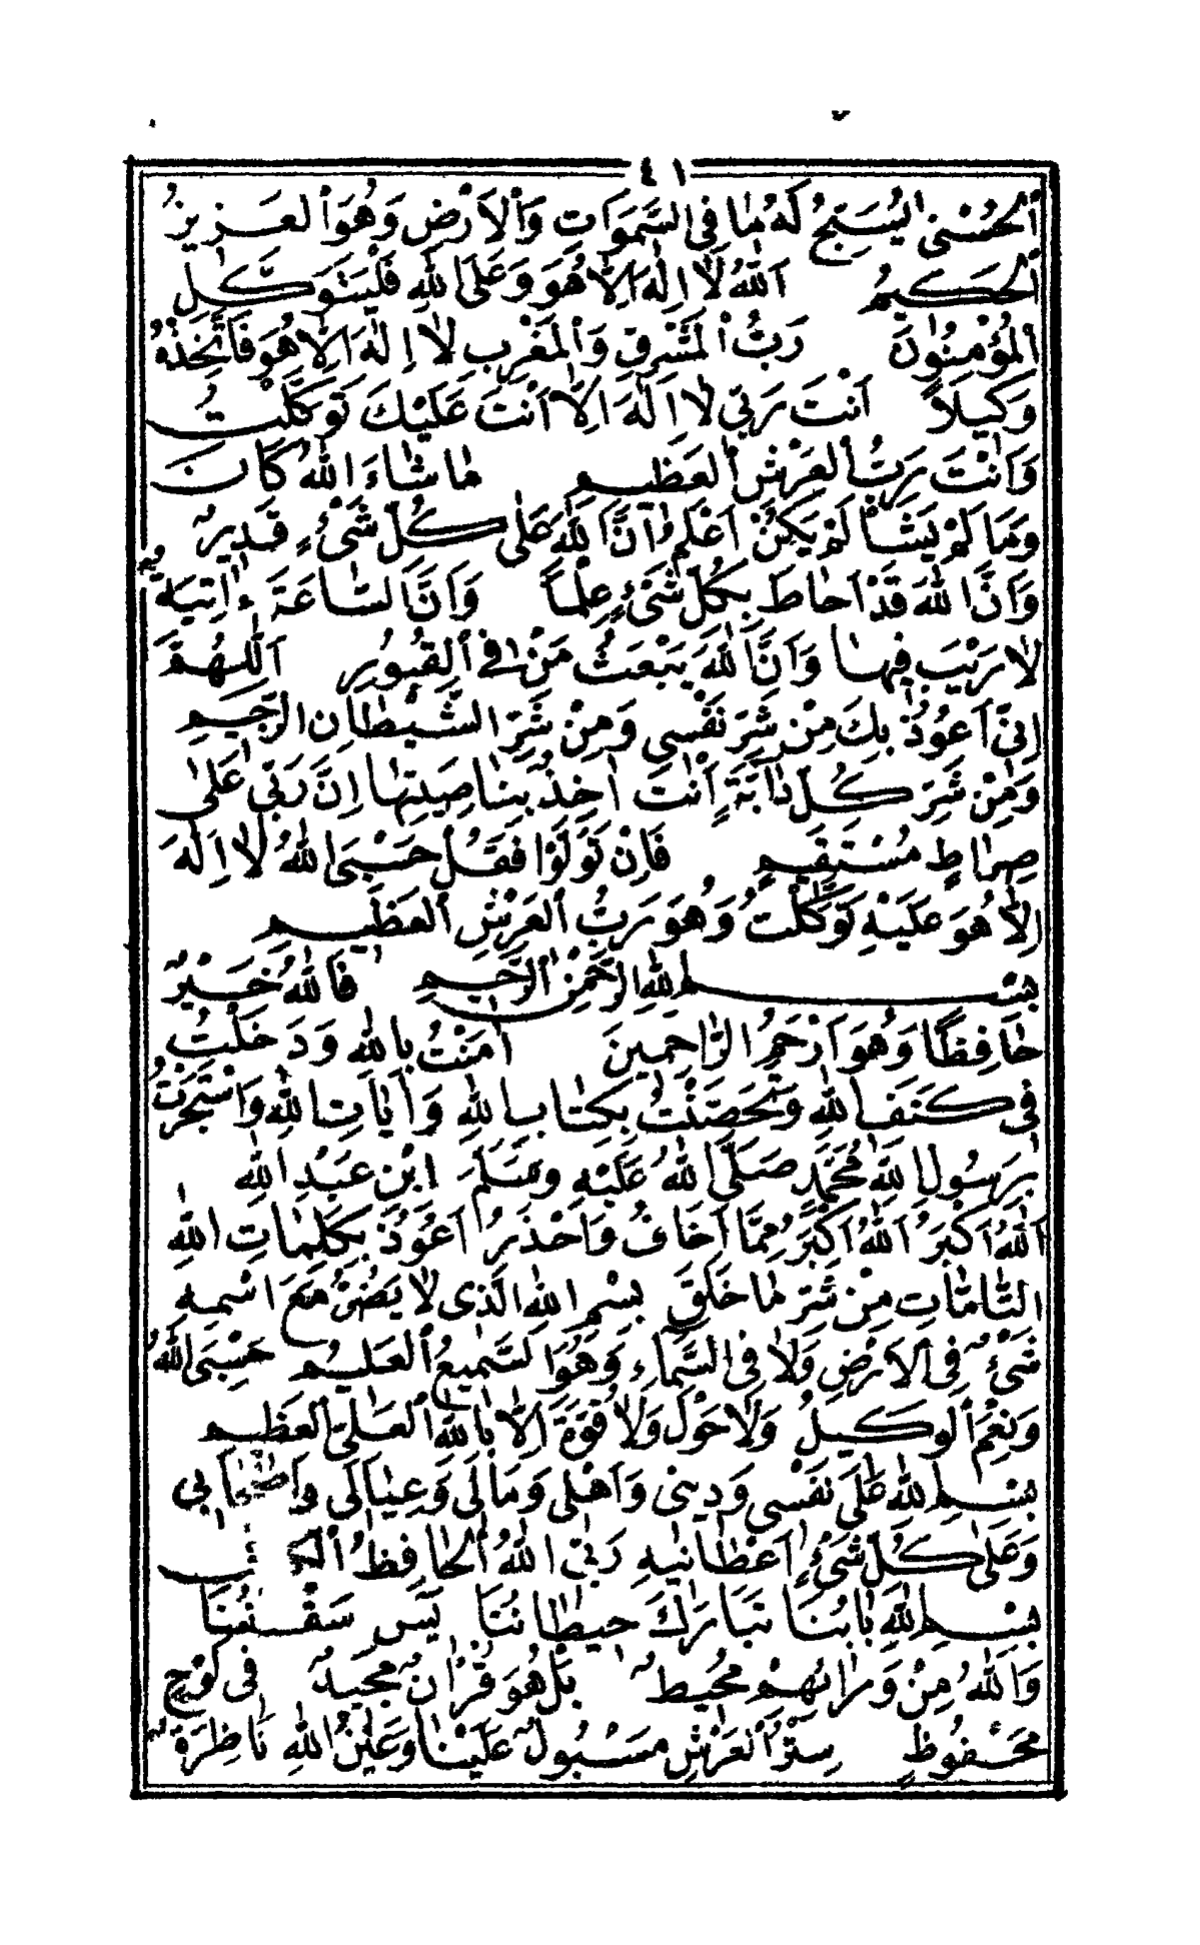 ٤١
ٱلْحُسْنٰى يُسَبِّحُ لَهُ مَا فِى السَّمٰوَاتِ وَٱلْاَرْضِ وَهُوَ ٱلْعَزِيزُ
ٱلْحَكِيمُ اَللّٰهُ لَا اِلٰهَ اِلَّا هُوَ وَعَلَى اللّٰهِ فَلْيَتَوَكَّلِ
ٱلْمُؤْمِنُونَ رَبُّ ٱلْمَشْرِقِ وَٱلْمَغْرِبِ لَا اِلٰهَ اِلَّا هُوَ فَاتَّخِذْهُ
وَكِيلًا اَنْتَ رَبِّى لَا اِلٰهَ اِلَّا اَنْتَ عَلَيْكَ تَوَكَّلْتُ
وَاَنْتَ رَبُّ ٱلْعَرْشِ ٱلْعَظِيمِ مَا شَاءَ اللّٰهُ كَانَ
وَمَا لَمْ يَشَأْ لَمْ يَكُنْ اَعْلَمُ اَنَّ اللّٰهَ عَلٰى كُلِّ شَىْءٍ قَدِيرٌ
وَاَنَّ اللّٰهَ قَدْ اَحَاطَ بِكُلِّ شَىْءٍ عِلْمًا وَاَنَّ السَّاعَةَ ءَاتِيَةٌ
لَا رَيْبَ فِيهَا وَاَنَّ اللّٰهَ يَبْعَثُ مَنْ فِى ٱلْقُبُورِ اَللّٰهُمَّ
اِنِّى اَعُوذُ بِكَ مِنْ شَرِّ نَفْسِى وَمِنْ شَرِّ الشَّيْطَانِ الرَّجِيمِ
وَمِنْ شَرِّ كُلِّ دَابَّةٍ اَنْتَ اٰخِذٌ بِنَاصِيَتِهَا اِنَّ رَبِّى عَلٰى
صِرَاطٍ مُسْتَقِيمٍ فَاِنْ تَوَلَّوْا فَقُلْ حَسْبِىَ اللّٰهُ لَا اِلٰهَ
اِلَّا هُوَ عَلَيْهِ تَوَكَّلْتُ وَهُوَ رَبُّ ٱلْعَرْشِ ٱلْعَظِيمِ
بِسْمِ اللّٰهِ الرَّحْمٰنِ الرَّحِيمِ فَاللّٰهُ خَيْرٌ
حَافِظًا وَهُوَ اَرْحَمُ الرَّاحِمِينَ اٰمَنْتُ بِاللّٰهِ وَدَخَلْتُ
فِى كَنَفِ اللّٰهِ وَتَحَصَّنْتُ بِكِتَابِ اللّٰهِ وَاٰيَاتِ اللّٰهِ وَاسْتَجَرْتُ
بِرَسُولِ اللّٰهِ مُحَمَّدٍ صَلَّى اللّٰهُ عَلَيْهِ وَسَلَّمَ ابْنِ عَبْدِ اللّٰهِ
اَللّٰهُ اَكْبَرُ اَللّٰهُ اَكْبَرُ مِمَّا اَخَافُ وَاَحْذَرُ اَعُوذُ بِكَلِمَاتِ اللّٰهِ
التَّامَّاتِ مِنْ شَرِّ مَا خَلَقَ بِسْمِ اللّٰهِ الَّذِى لَا يَضُرُّ مَعَ اسْمِهِ
شَىْءٌ فِى ٱلْاَرْضِ وَلَا فِى السَّمَاءِ وَهُوَ السَّمِيعُ ٱلْعَلِيمُ حَسْبِىَ اللّٰهُ
وَنِعْمَ ٱلْوَكِيلُ وَلَا حَوْلَ وَلَا قُوَّةَ اِلَّا بِاللّٰهِ ٱلْعَلِىِّ ٱلْعَظِيمِ
بِسْمِ اللّٰهِ عَلٰى نَفْسِى وَدِينِى وَاَهْلِى وَمَالِى وَعِيَالِى وَاَصْحَابِى
وَعَلٰى كُلِّ شَىْءٍ اَعْطَانِيهِ رَبِّى اللّٰهُ ٱلْحَافِظُ
بِسْمِ اللّٰهِ بَابُنَا تَبَارَكَ حِيطَانُنَا يٰسٓ سَقْفُنَا
وَاللّٰهُ مِنْ وَرَائِهِمْ مُحِيطٌ بَلْ هُوَ قُرْاٰنٌ مَجِيدٌ فِى لَوْحٍ
مَحْفُوظٍ سِتْرُ ٱلْعَرْشِ مَسْبُولٌ عَلَيْنَا وَعَيْنُ اللّٰهِ نَاظِرَةٌ